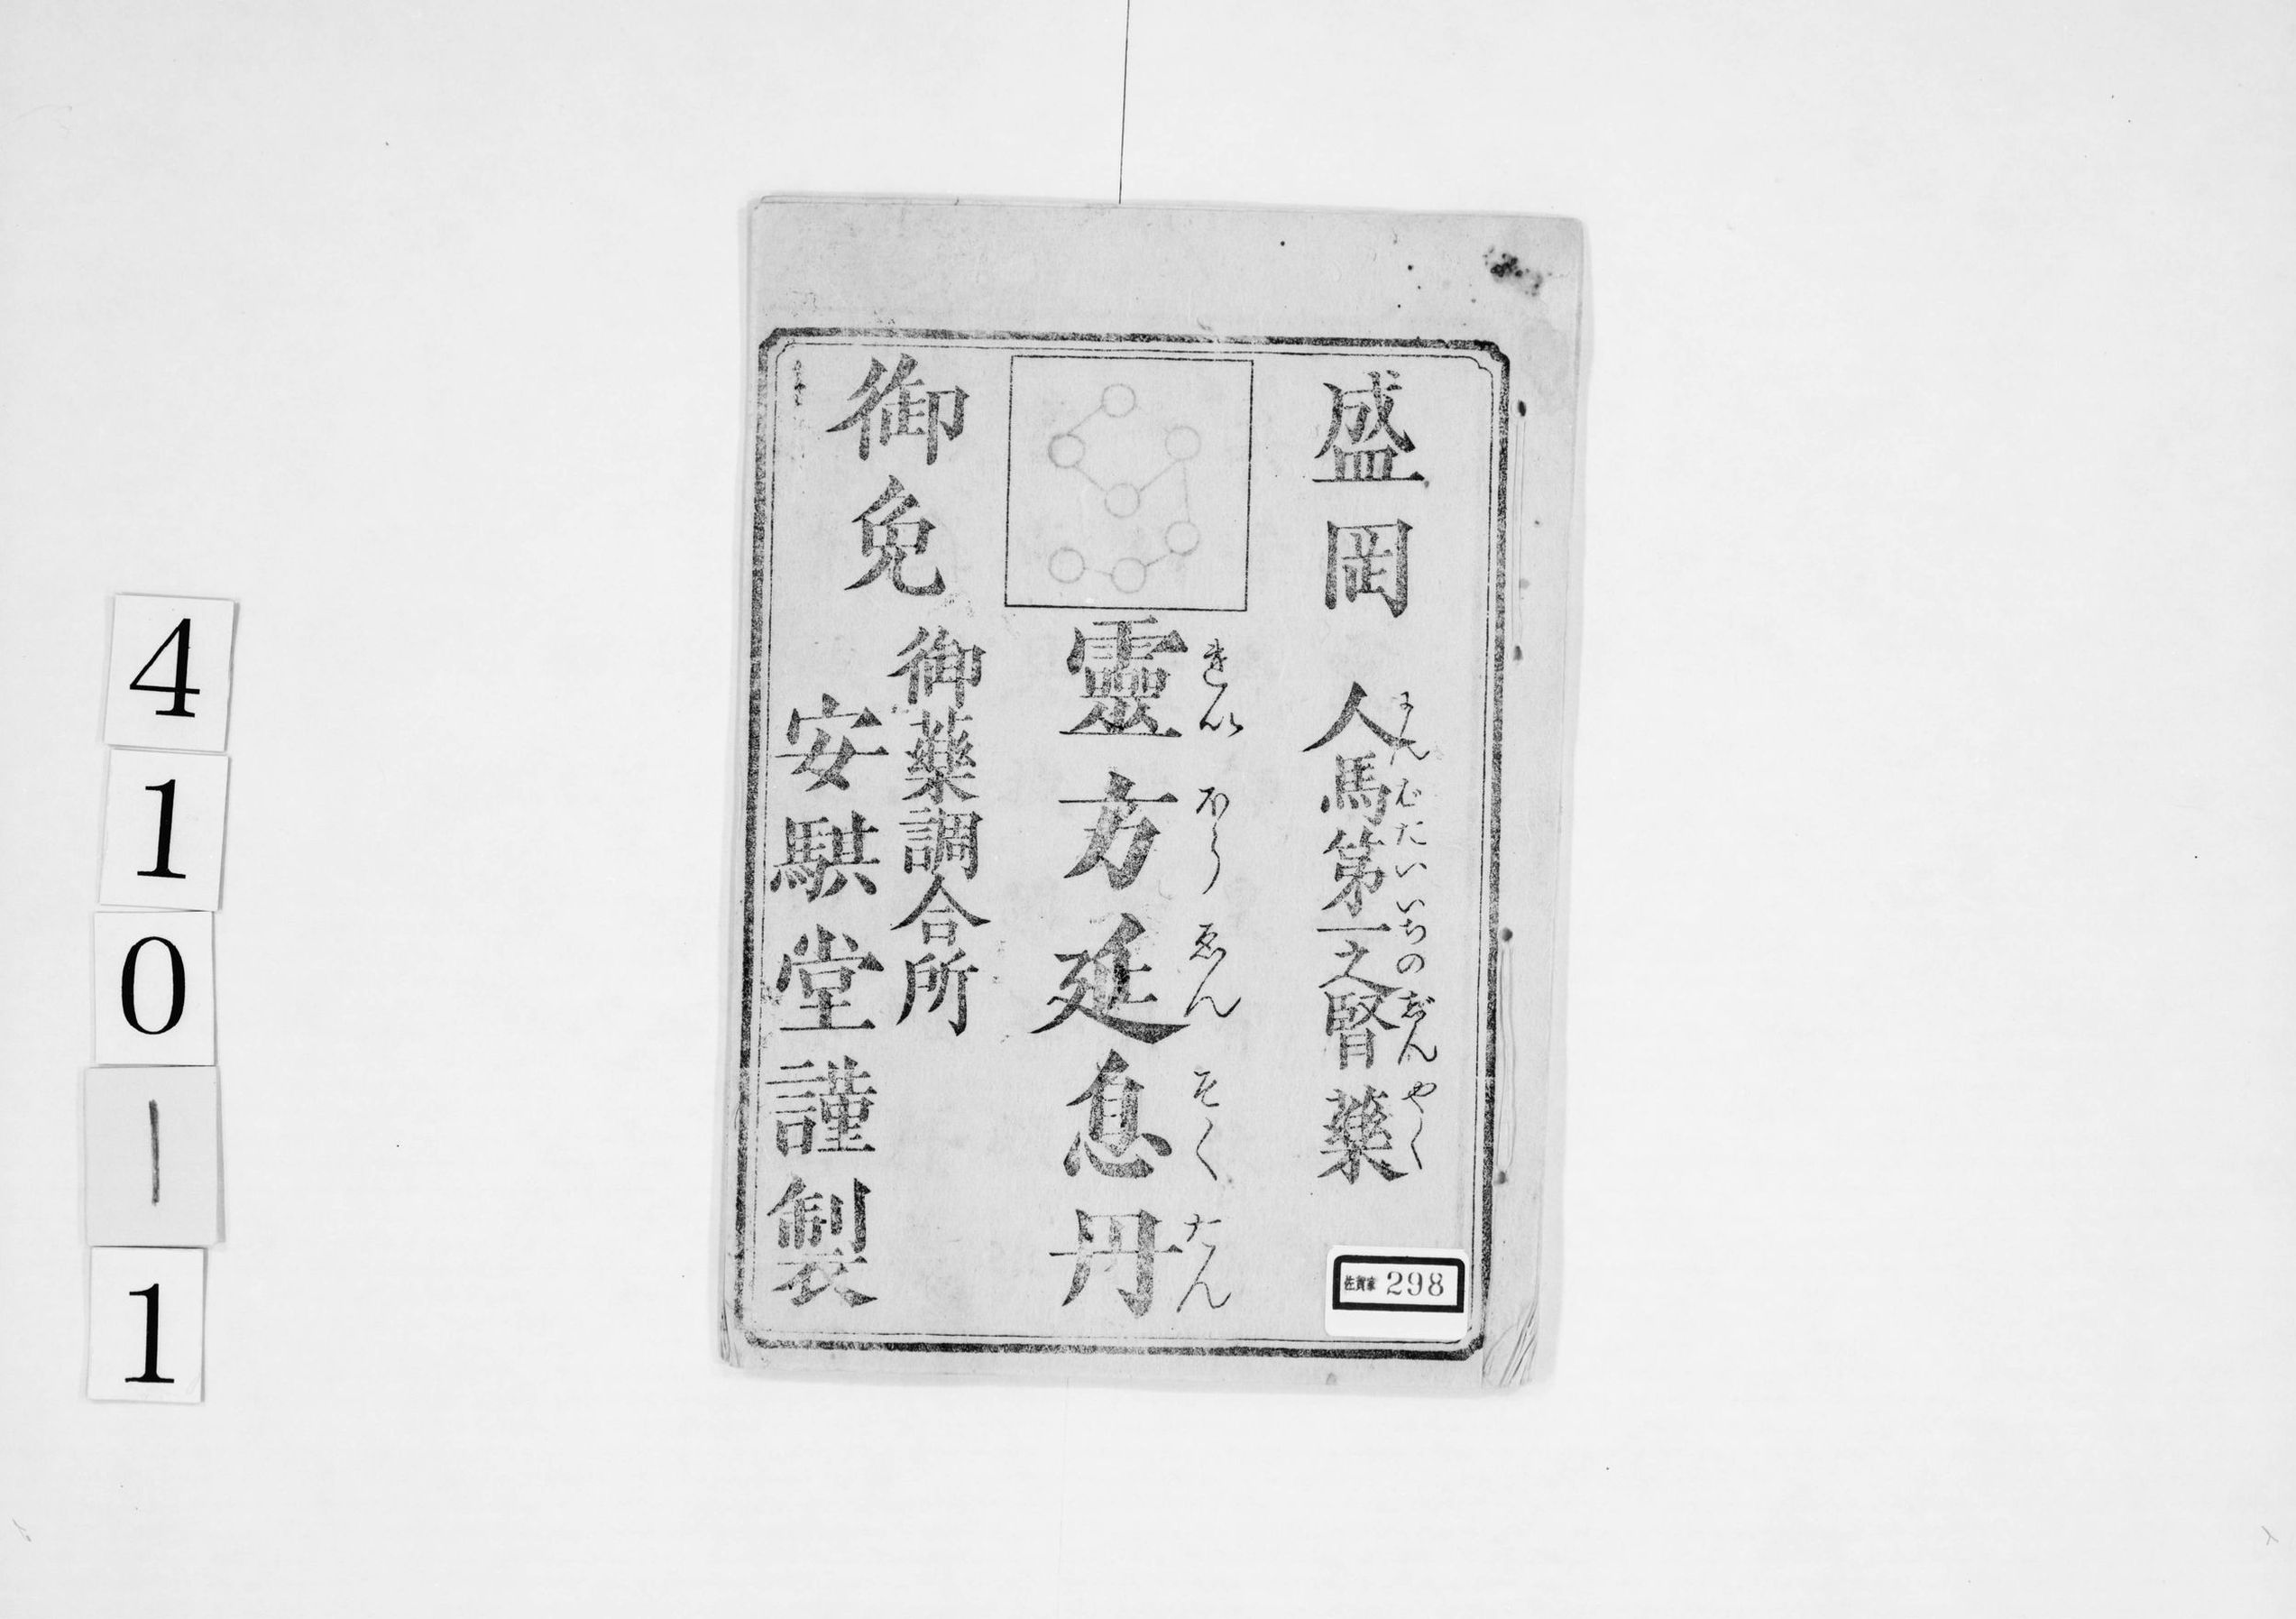 盛岡 人馬第一之腎藥
にんばだいいちのじんやく
靈方延息丹
れいほうゑんそくたん
御免
御藥調合所
安騏堂謹製
佐賀家 298
410-1